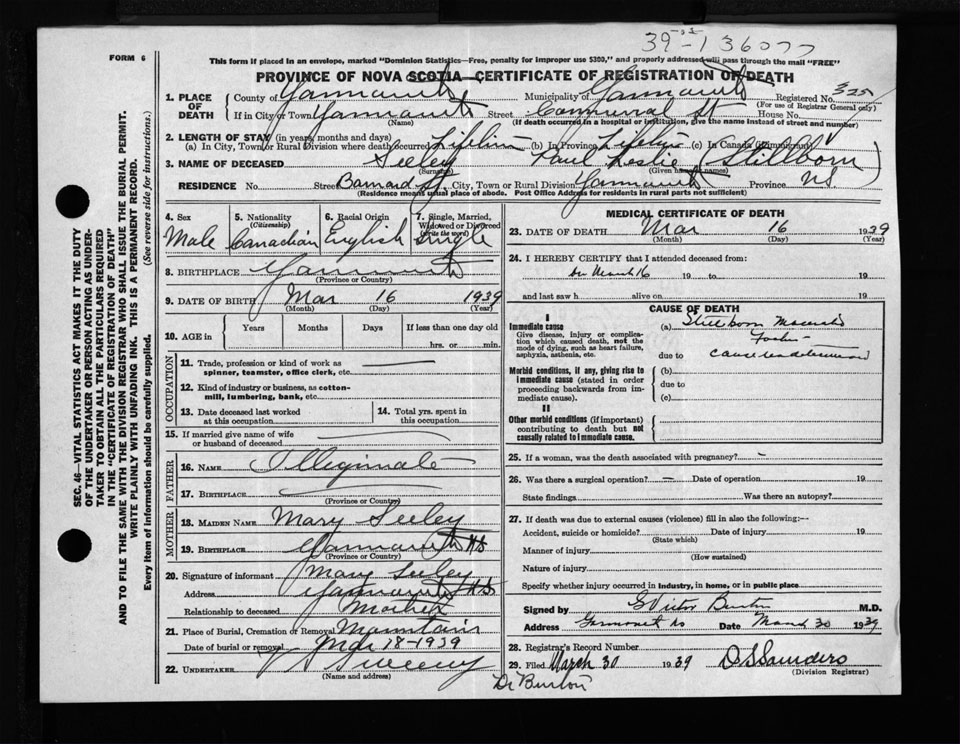 39-1 36077
FORM 6
This form if placed in an envelope, marked "Dominion Statistics—Free, penalty for improper use $300," and properly addressed will pass through the mail "FREE"
PROVINCE OF NOVA SCOTIA—CERTIFICATE OF REGISTRATION OF DEATH
1. PLACE OF DEATH County of Yarmouth Municipality of Yarmouth Registered No. 325
(For use of Registrar General only)
If in City or Town Yarmouth Street House No.
(Name) (If death occurred in a hospital or institution, give the name instead of street and number)
2. LENGTH OF STAY (in years, months and days)
(a) In City, Town or Rural Division where death occurred (b) In Province (c) In Canada (if immigrant)
3. NAME OF DECEASED Seeley Paul Leslie (Stillborn)
(Surname) (Given name or names)
RESIDENCE No. Street Barnard St, City, Town or Rural Division Yarmouth Province NS
(Residence means usual place of abode. Post Office Address for residents in rural parts not sufficient)
4. Sex
Male
5. Nationality
(Citizenship)
Canadian
6. Racial Origin
English
7. Single, Married, Widowed or Divorced
(Write the word)
Single
8. BIRTHPLACE Yarmouth
(Province or Country)
9. DATE OF BIRTH Mar 16 1939
(Month) (Day) (Year)
10. AGE in Years Months Days If less than one day old
hrs. or min.
OCCUPATION
11. Trade, profession or kind of work as
spinner, teamster, office clerk, etc.
12. Kind of industry or business, as cotton-
mill, lumbering, bank, etc.
13. Date deceased last worked
at this occupation
14. Total yrs. spent in
this occupation
15. If married give name of wife
or husband of deceased
FATHER
16. NAME Illegimate
17. BIRTHPLACE
(Province or Country)
MOTHER
18. MAIDEN NAME Mary Seeley
19. BIRTHPLACE Yarmouth NS
(Province or Country)
20. Signature of informant Mary Seeley
Address Yarmouth NS
Relationship to deceased Mother
21. Place of Burial, Cremation or Removal Mountain
Date of burial or removal Mar 18-1939
22. UNDERTAKER Sweeny
(Name and address)
Dr Burton
MEDICAL CERTIFICATE OF DEATH
23. DATE OF DEATH Mar 16 1939
(Month) (Day) (Year)
24. I HEREBY CERTIFY that I attended deceased from:
on March 16 19 to 19
and last saw h alive on 19
CAUSE OF DEATH
I
Immediate cause
Give disease, injury or complication which caused death, not the mode of dying, such as heart failure, asphyxia, asthenia, etc.
(a) Stillborn
due to
Morbid conditions, if any, giving rise to immediate cause (stated in order proceeding backwards from immediate cause).
(b)
due to
(c)
II
Other morbid conditions (if important) contributing to death but not causally related to immediate cause.
25. If a woman, was the death associated with pregnancy? –
26. Was there a surgical operation? – Date of operation 19
State findings Was there an autopsy?
27. If death was due to external causes (violence) fill in also the following:—
Accident, suicide or homicide? Date of injury 19
(State which)
Manner of injury
(How sustained)
Nature of injury
Specify whether injury occurred in industry, in home, or in public place
Signed by G Victor Burton M.D.
Address Yarmouth NS Date March 30 1939
28. Registrar's Record Number
29. Filed March 30 1939 D S Saunders
(Division Registrar)
SEC. 46—VITAL STATISTICS ACT MAKES IT THE DUTY
OF THE UNDERTAKER OR PERSON ACTING AS UNDER-
TAKER TO OBTAIN ALL THE PARTICULARS REQUIRED
IN THE "CERTIFICATE OF REGISTRATION OF DEATH"
AND TO FILE THE SAME WITH THE DIVISION REGISTRAR WHO SHALL ISSUE THE BURIAL PERMIT.
WRITE PLAINLY WITH UNFADING INK. THIS IS A PERMANENT RECORD.
Every item of information should be carefully supplied. (See reverse side for instructions.)